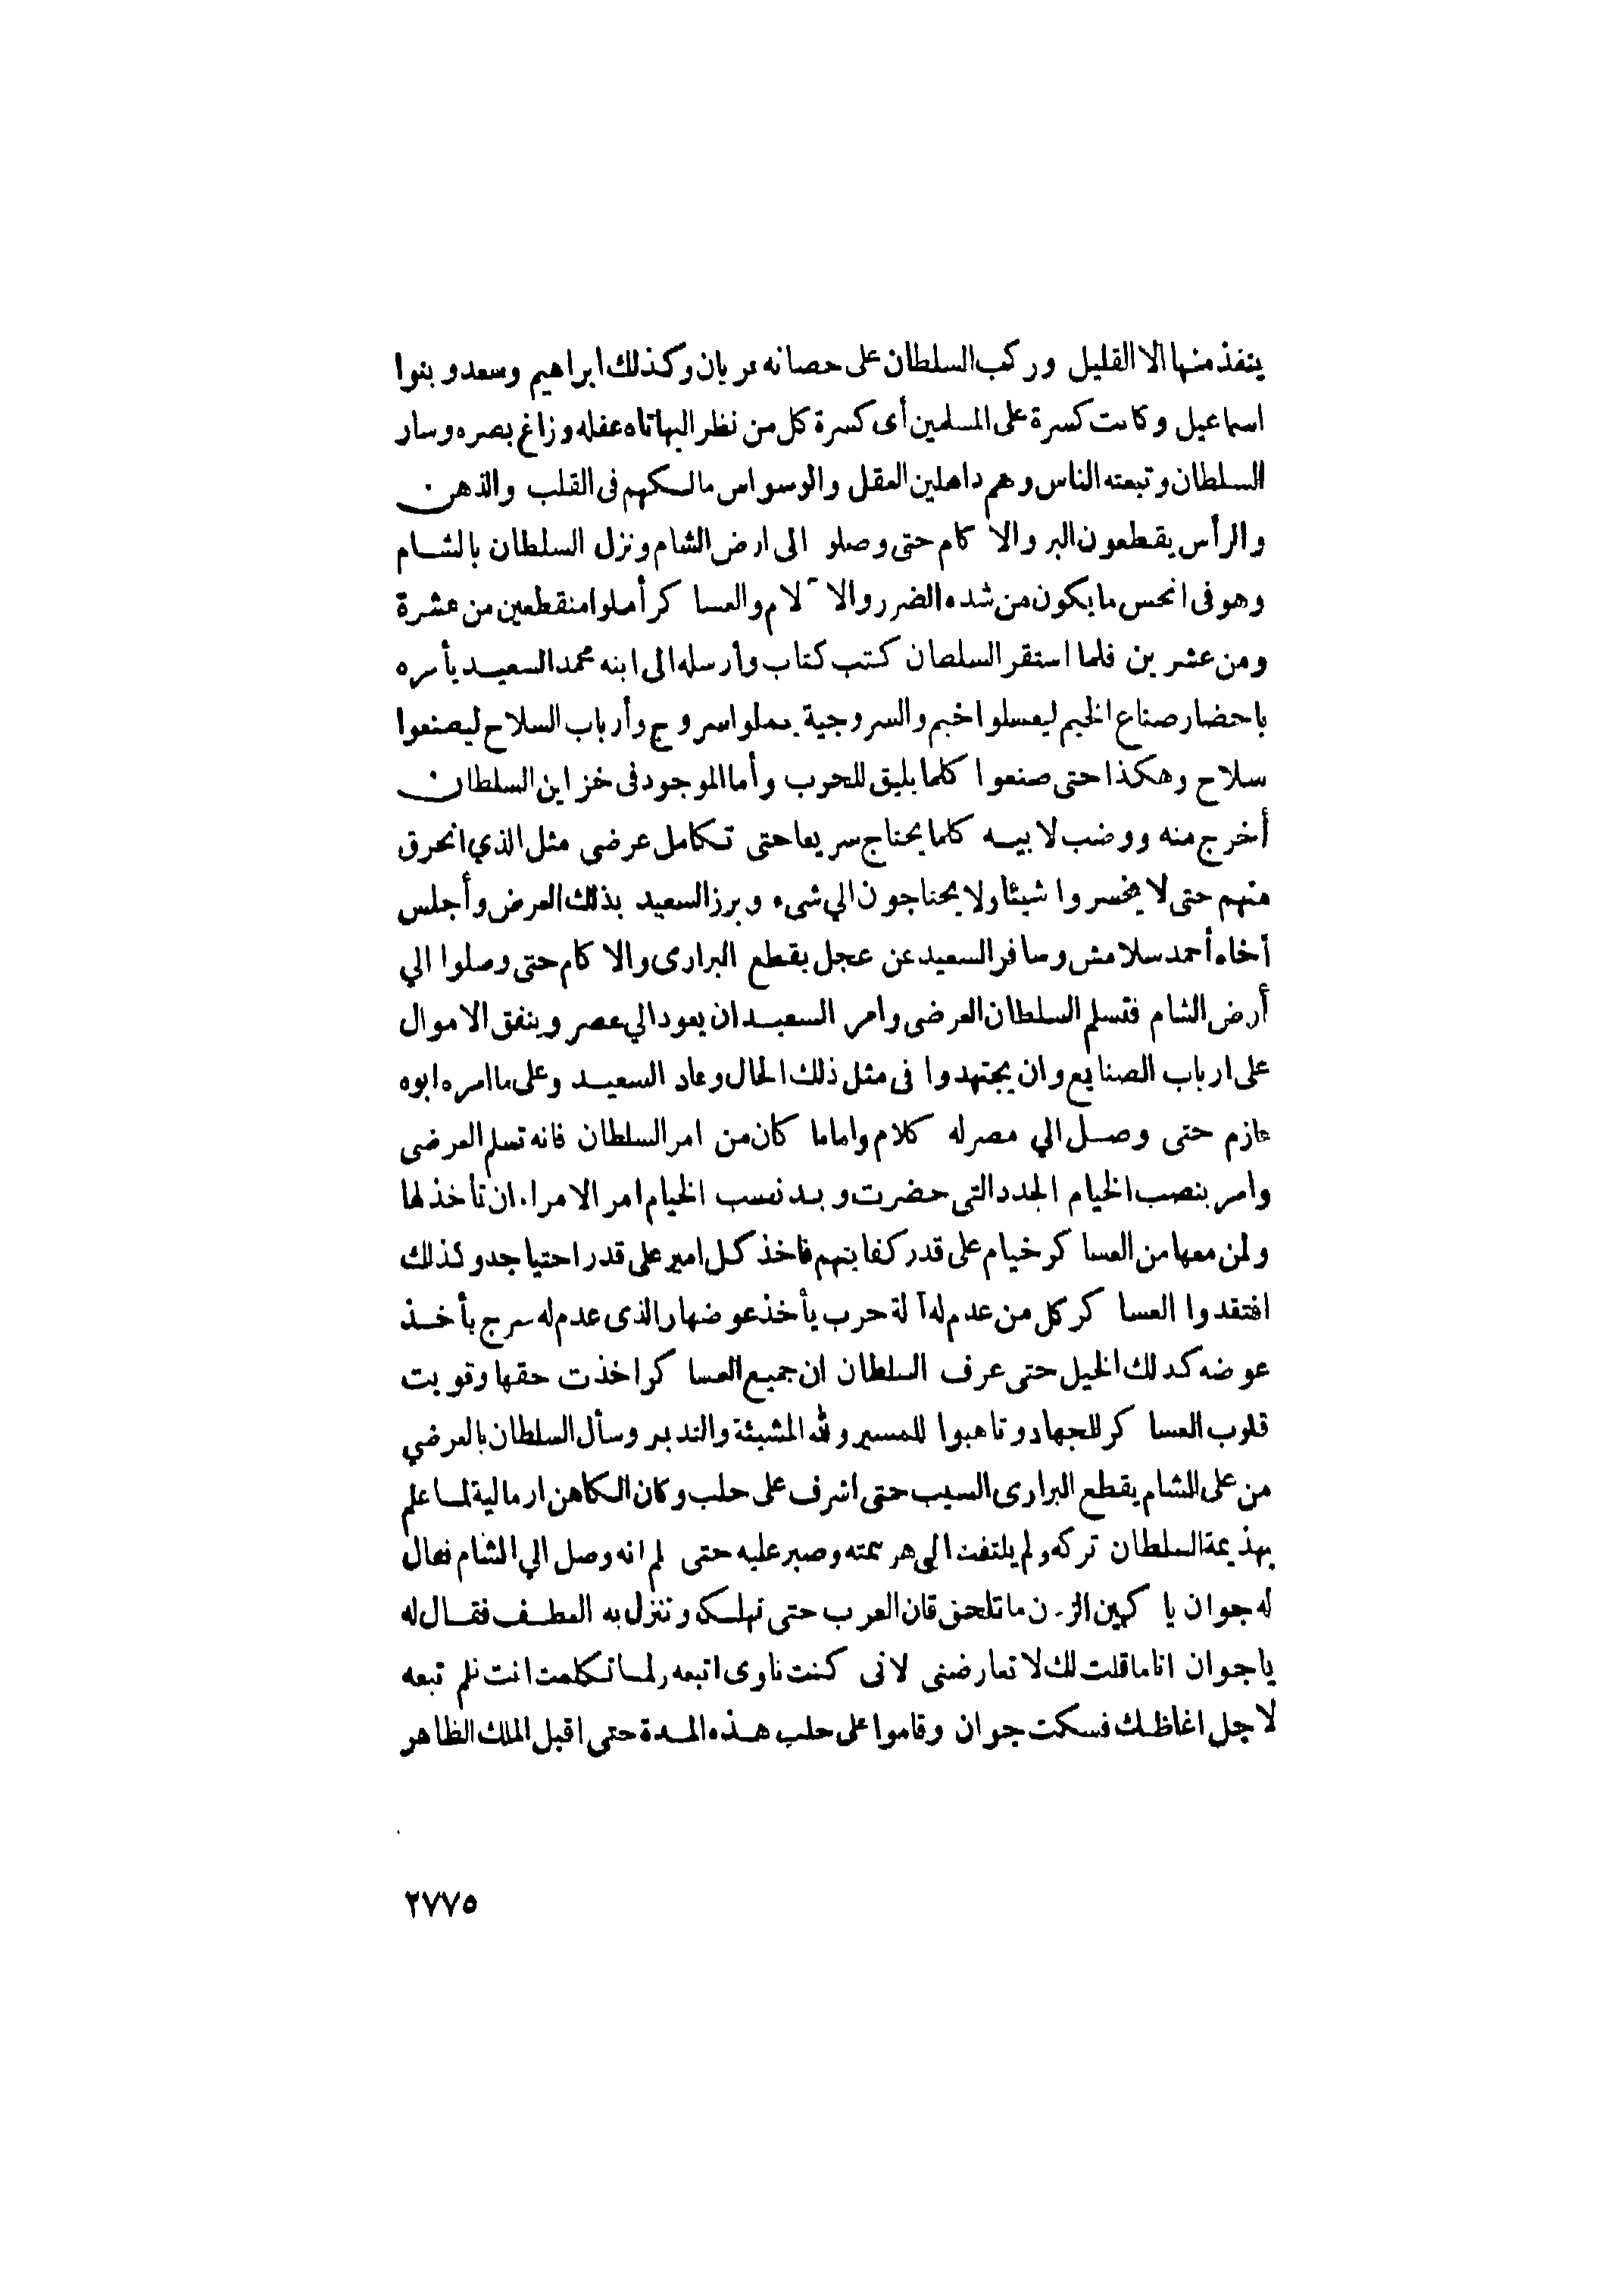 ينفذ منها الا القليل وركب السلطان على حصانه عريان وكذلك ابراهيم وسعد وبنوا
اسماعيل وكانت كسرة على المسلمين أى كسرة كل من نظر اليها تاه عقله وزاغ بصره وسار
السلطان وتبعته الناس وهم داهلين العقل والوسواس مالكهم فى القلب والذهن
والرأس يقطعون البر والاكام حتى وصلو الى ارض الشام ونزل السلطان بالشام
وهو فى انحس ما يكون من شده الضرر والآلام والعساكر أملوا منقطعين من عشرة
ومن عشرين فلما استقر السلطان كتب كتاب وأرسله الى ابنه محمد السعيد يأمره
باحضار صناع الخيم ليعملوا خيم والسروجية يعملوا سروج وأرباب السلاح ليصنعوا
سلاح وهكذا حتى صنعوا كلما يليق للحرب وأما الموجود فى خزاين السلطان
أخرج منه ووضب لابيه كلما يحتاج سريعا حتى تكامل عرضى مثل الذي انحرق
منهم حتى لا يخسروا شيئا ولا يحتاجون الي شىء وبرز السعيد بذلك العرض وأجلس
أخاه أحمد سلامش وسافر السعيد عن عجل يقطع البرارى والاكام حتى وصلوا الي
أرض الشام فتسلم السلطان العرضى وامر السعيد ان يعود الي مصر وينفق الاموال
على ارباب الصنايع وان يجتهدوا فى مثل ذلك الحال وعاد السعيد وعلى ما امره ابوه
عازم حتى وصل الي مصر له كلام واما ما كان من امر السلطان فانه تسلم العرضى
وامر بنصب الخيام الجدد التى حضرت وبعد نصب الخيام امر الامراء ان تأخذ لها
ولمن معها من العساكر خيام على قدر كفايتهم فاخذ كل امير على قدر احتياجه وكذلك
افتقدوا العساكر كل من عدم له آلة حرب يأخذ عوضها والذى عدم له سرج يأخذ
عوضه كدلك الخيل حتى عرف السلطان ان جميع العساكر اخذت حقها وقويت
قلوب العساكر للجهاد وتاهبوا للمسير ولله المشيئة والتدبير وسأل السلطان بالعرضي
من على الشام يقطع البرارى السيب حتى اشرف على حلب وكان الكاهن ارمالية لما علم
بهذيمة السلطان تركه ولم يلتفت الى هزيمته وصبر عليه حتى لم انه وصل الي الشام فعال
له جوان يا كهين الزمن ما تلحق قان العرب حتى تهلكه وتنزل به العطف فقال له
يا جوان انا ما قلت لك لا تعارضنى لانى كنت ناوى اتبعه ولما تكلمت انت فلم تبعه
لاجل اغاظك فسكت جوان وقاموا على حلب هذه المدة حتى اقبل الملك الظاهر
٢٧٧٥